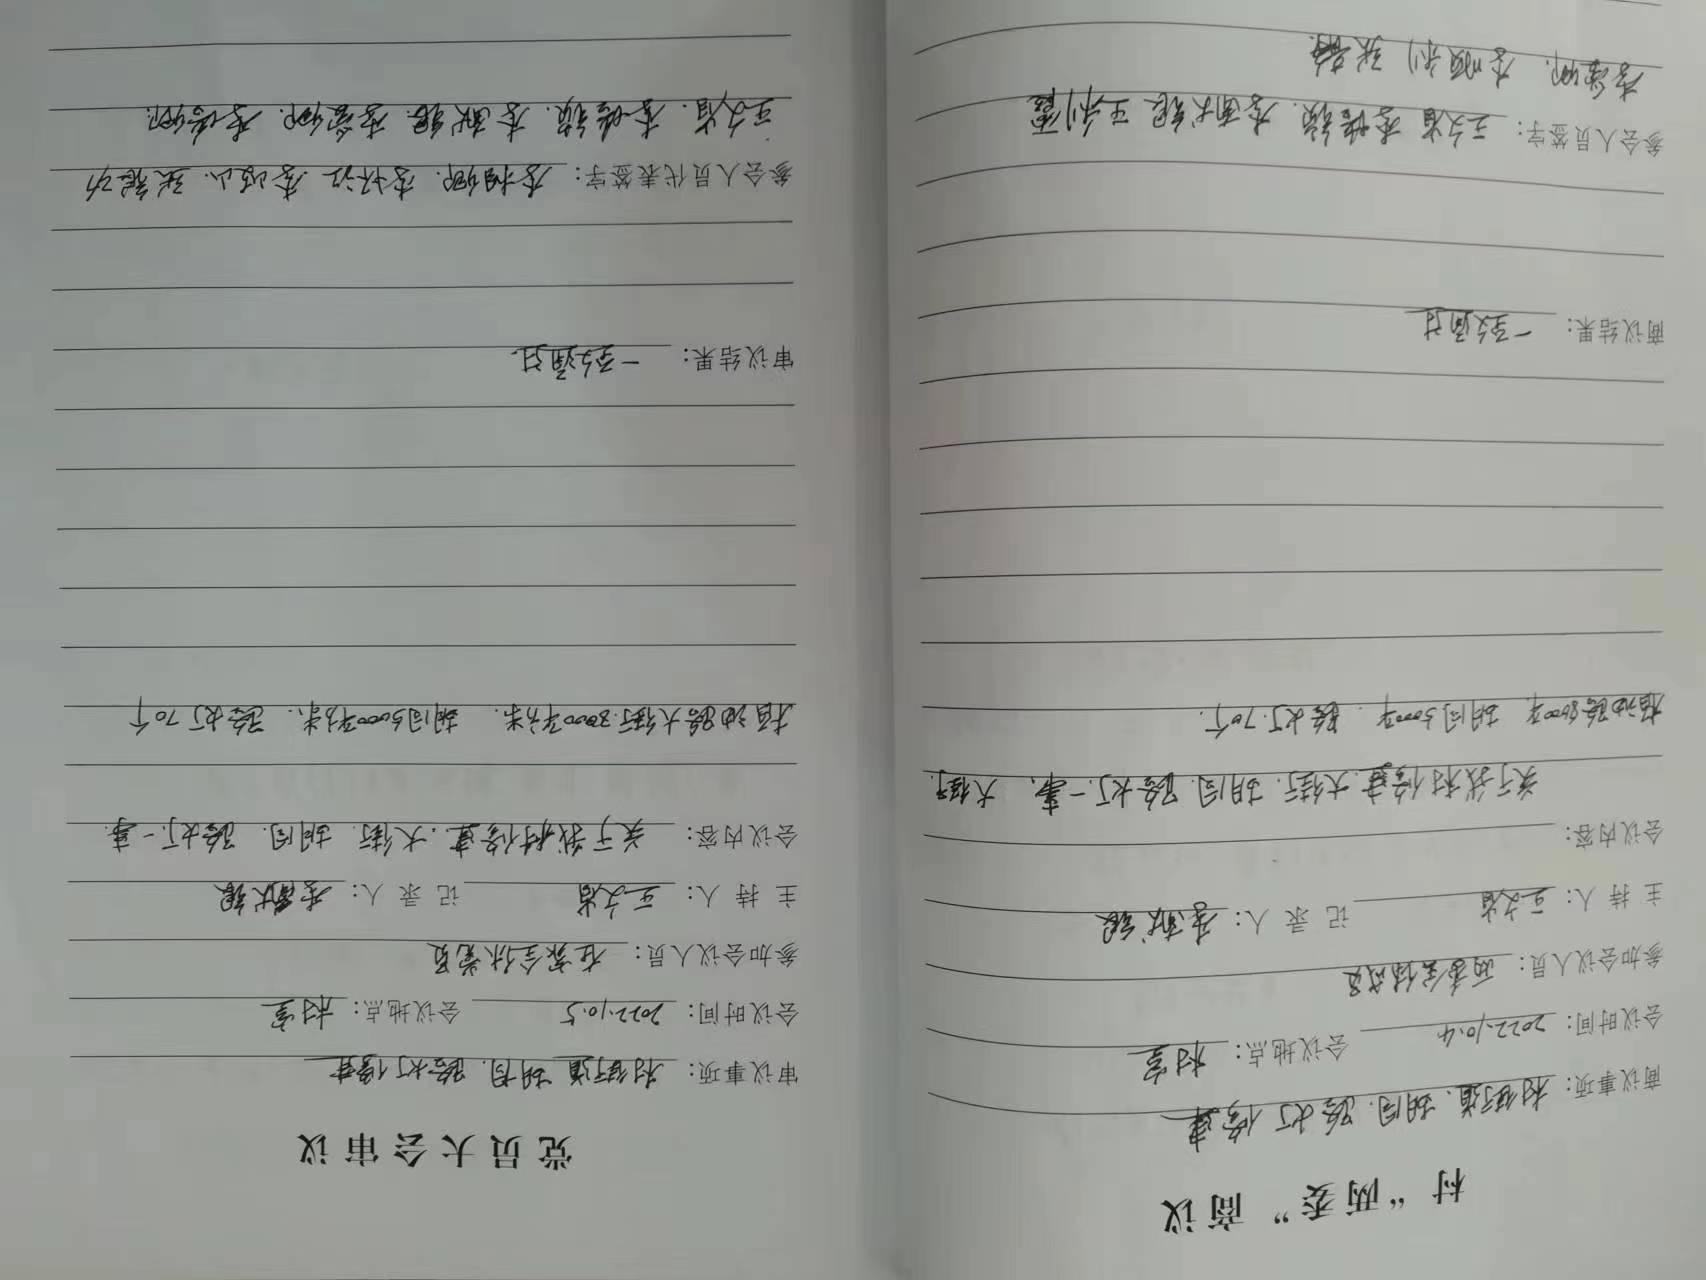 村“两委”商议
商议事项：村街道、胡同、路灯修建
会议时间：2022.10.4 会议地点：村室
参加会议人员：两委全体成员
主持人：王文省 记录人：李献银
会议内容：
关于我村修建.大街.胡同.路灯.一事、大街
柏油路8000平 胡同5000平. 路灯.70个
商议结果：一致通过
参会人员签字：王文省 李 李献银 王利霞
李 李顺利 张
党员大会审议
审议事项：村街道 胡同.路灯修建
会议时间：2022.10.5 会议地点：村室
参加会议人员：在家全体党员
主持人：王文省 记录人：李献银
会议内容：关于我村修建.大街 胡同 路灯.一事.
柏油路大街.8000平方米. 胡同5000平方米、路灯70个
审议结果：一致通过.
参会人员代表签字：李相卿.李 李 张
王文省.李 李献银.李 李